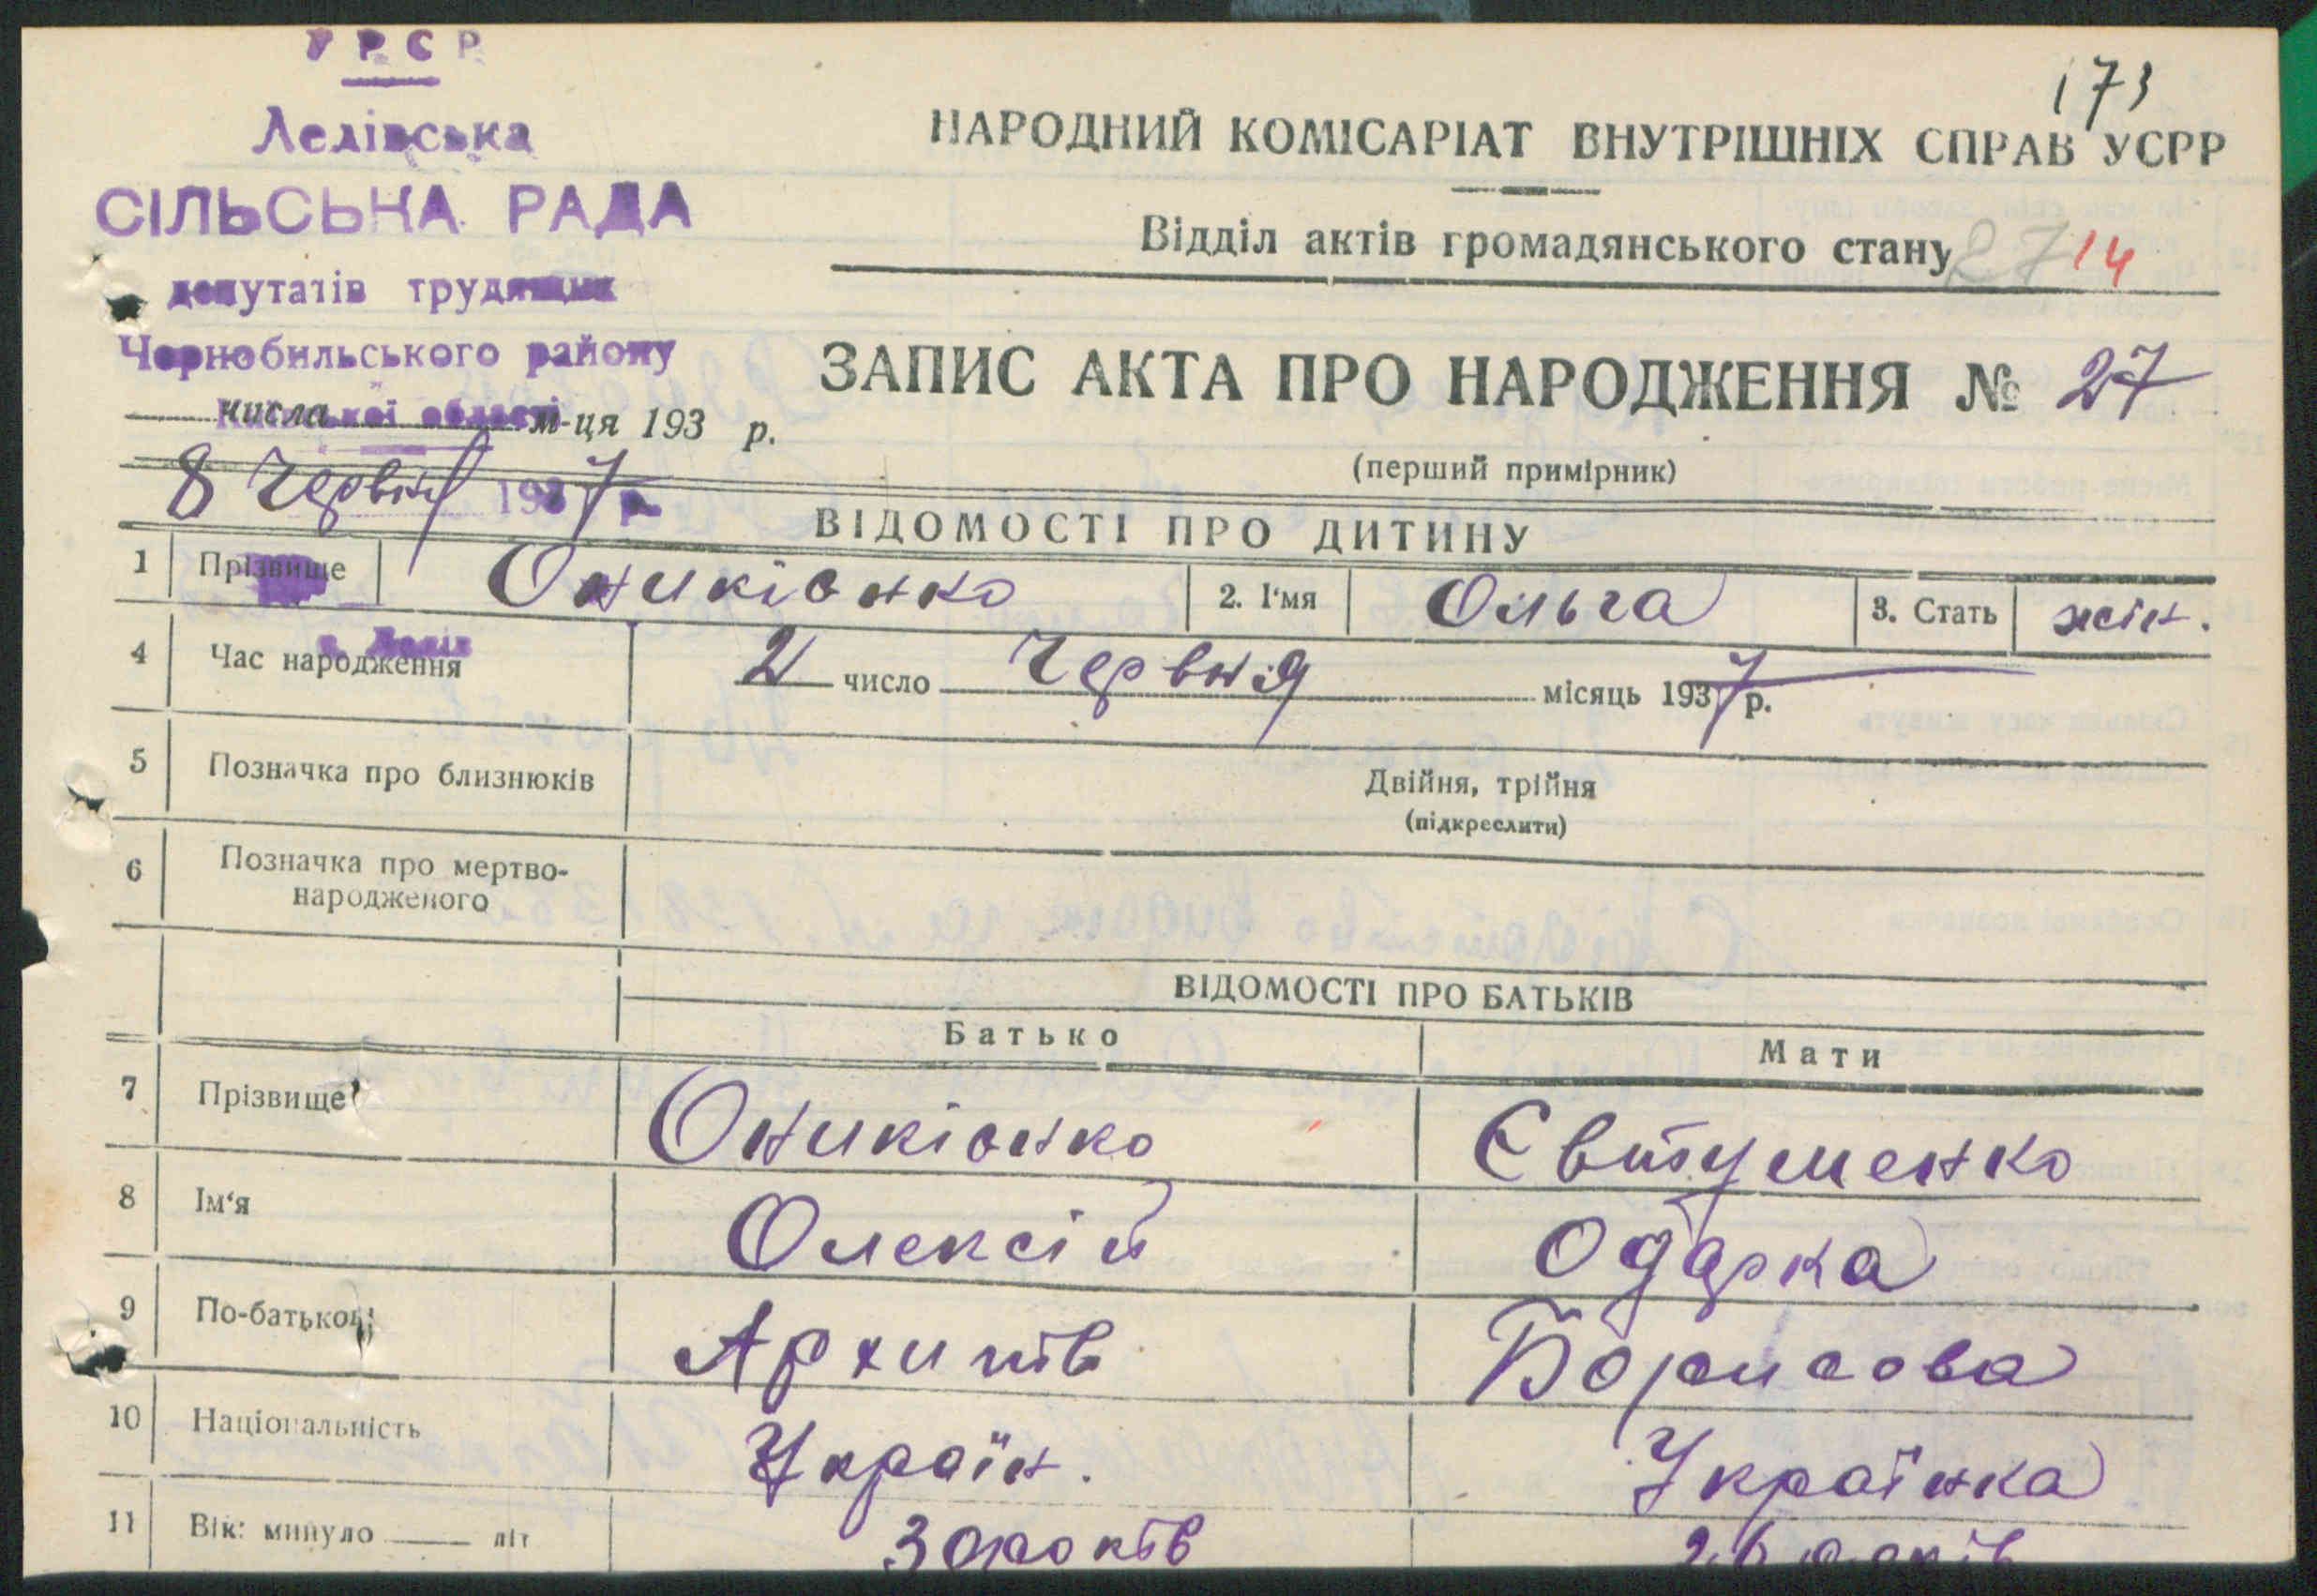 УРСР
173
Ледівська
НАРОДНИЙ КОМІСАРІАТ ВНУТРІШНІХ СПРАВ УСРР
СІЛЬСЬКА РАДА
Відділ актів громадянського стану 27 14
депутатів трудящих
Чорнобильського району
ЗАПИС АКТА ПРО НАРОДЖЕННЯ № 27
Київської області
числа м-ця 193 р.
(перший примірник)
8 Червня 1937 р.
ВІДОМОСТІ ПРО ДИТИНУ
1 Прізвище Оникієнко 2. І'мя Ольга 3. Стать жін.
4 Час народження 2 число Червня місяць 1937 р.
5 Позначка про близнюків Двійня, трійня
(підкреслити)
6 Позначка про мертво-
народженого
ВІДОМОСТІ ПРО БАТЬКІВ
Батько Мати
7 Прізвище Оникієнко Євтушенко
8 Ім'я Олексій Одарка
9 По-батькові Архипів Борисова
10 Національність Україн. Українка
11 Вік: минуло літ 30 років 26 років